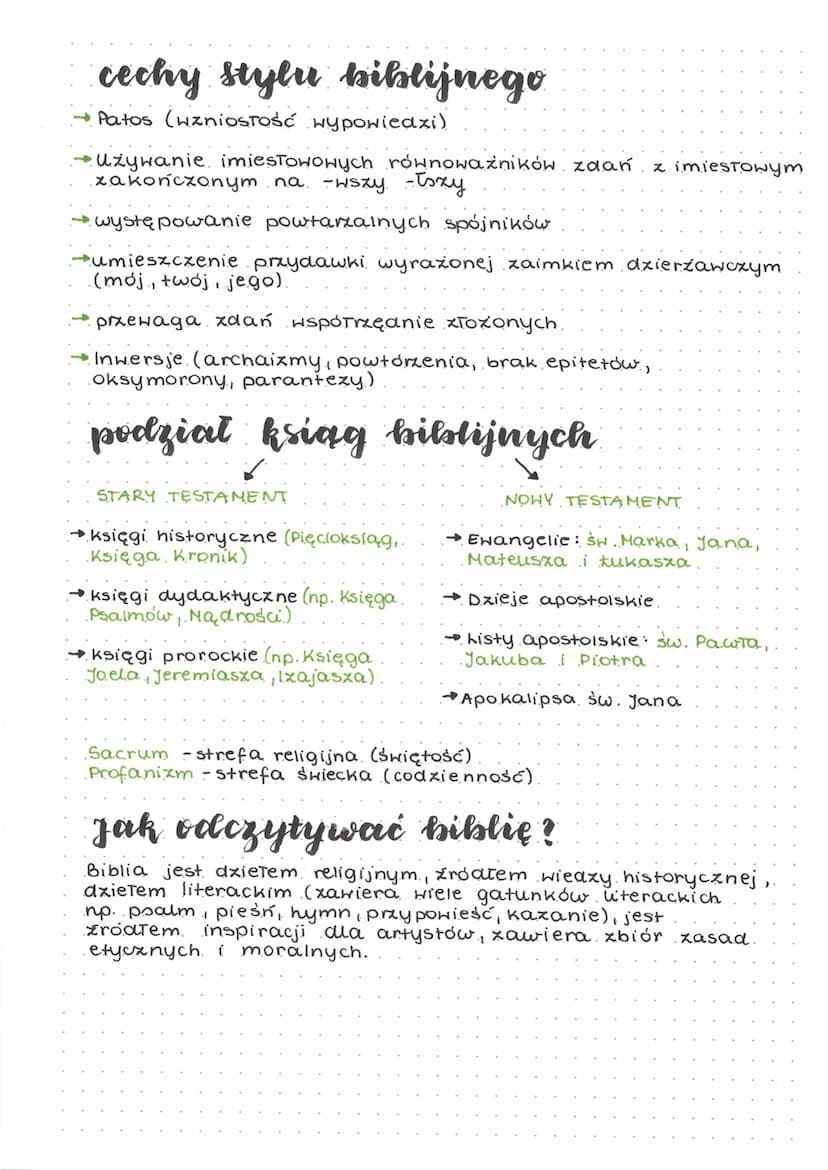 cechy stylu biblijnego
→ Patos (wzniosłość wypowiedzi)
→ Używanie imiesłowowych równoważników zdań z imiesłowym
zakończonym na -wszy -łszy
→ występowanie powtarzalnych spójników
→ umieszczenie przydawki wyrażonej zaimkiem dzierżawczym
(mój, twój, jego)
→ przewaga zdań współrzędnie złożonych
→ Inwersje (archaizmy, powtórzenia, brak epitetów,
oksymorony, parantezy)
podział ksiąg biblijnych
STARY TESTAMENT
→ księgi historyczne (Pięcioksiąg,
Księga Kronik)
→ księgi dydaktyczne (np. Księga
Psalmów, Mądrości)
→ księgi prorockie (np. Księga
Joela, Jeremiasza, Izajasza)
NOWY TESTAMENT
→ Ewangelie: św. Marka, Jana,
Mateusza i Łukasza
→ Dzieje apostolskie
→ Listy apostolskie: św. Pawła,
Jakuba i Piotra
→ Apokalipsa św. Jana
Sacrum - strefa religijna (świętość)
Profanizm - strefa świecka (codzienność)
Jak odczytywać biblię?
Biblia jest dziełem religijnym, źródłem wiedzy historycznej,
dziełem literackim (zawiera wiele gatunków literackich
np. psalm, pieśń, hymn, przypowieść, kazanie), jest
źródłem inspiracji dla artystów, zawiera zbiór zasad
etycznych i moralnych.